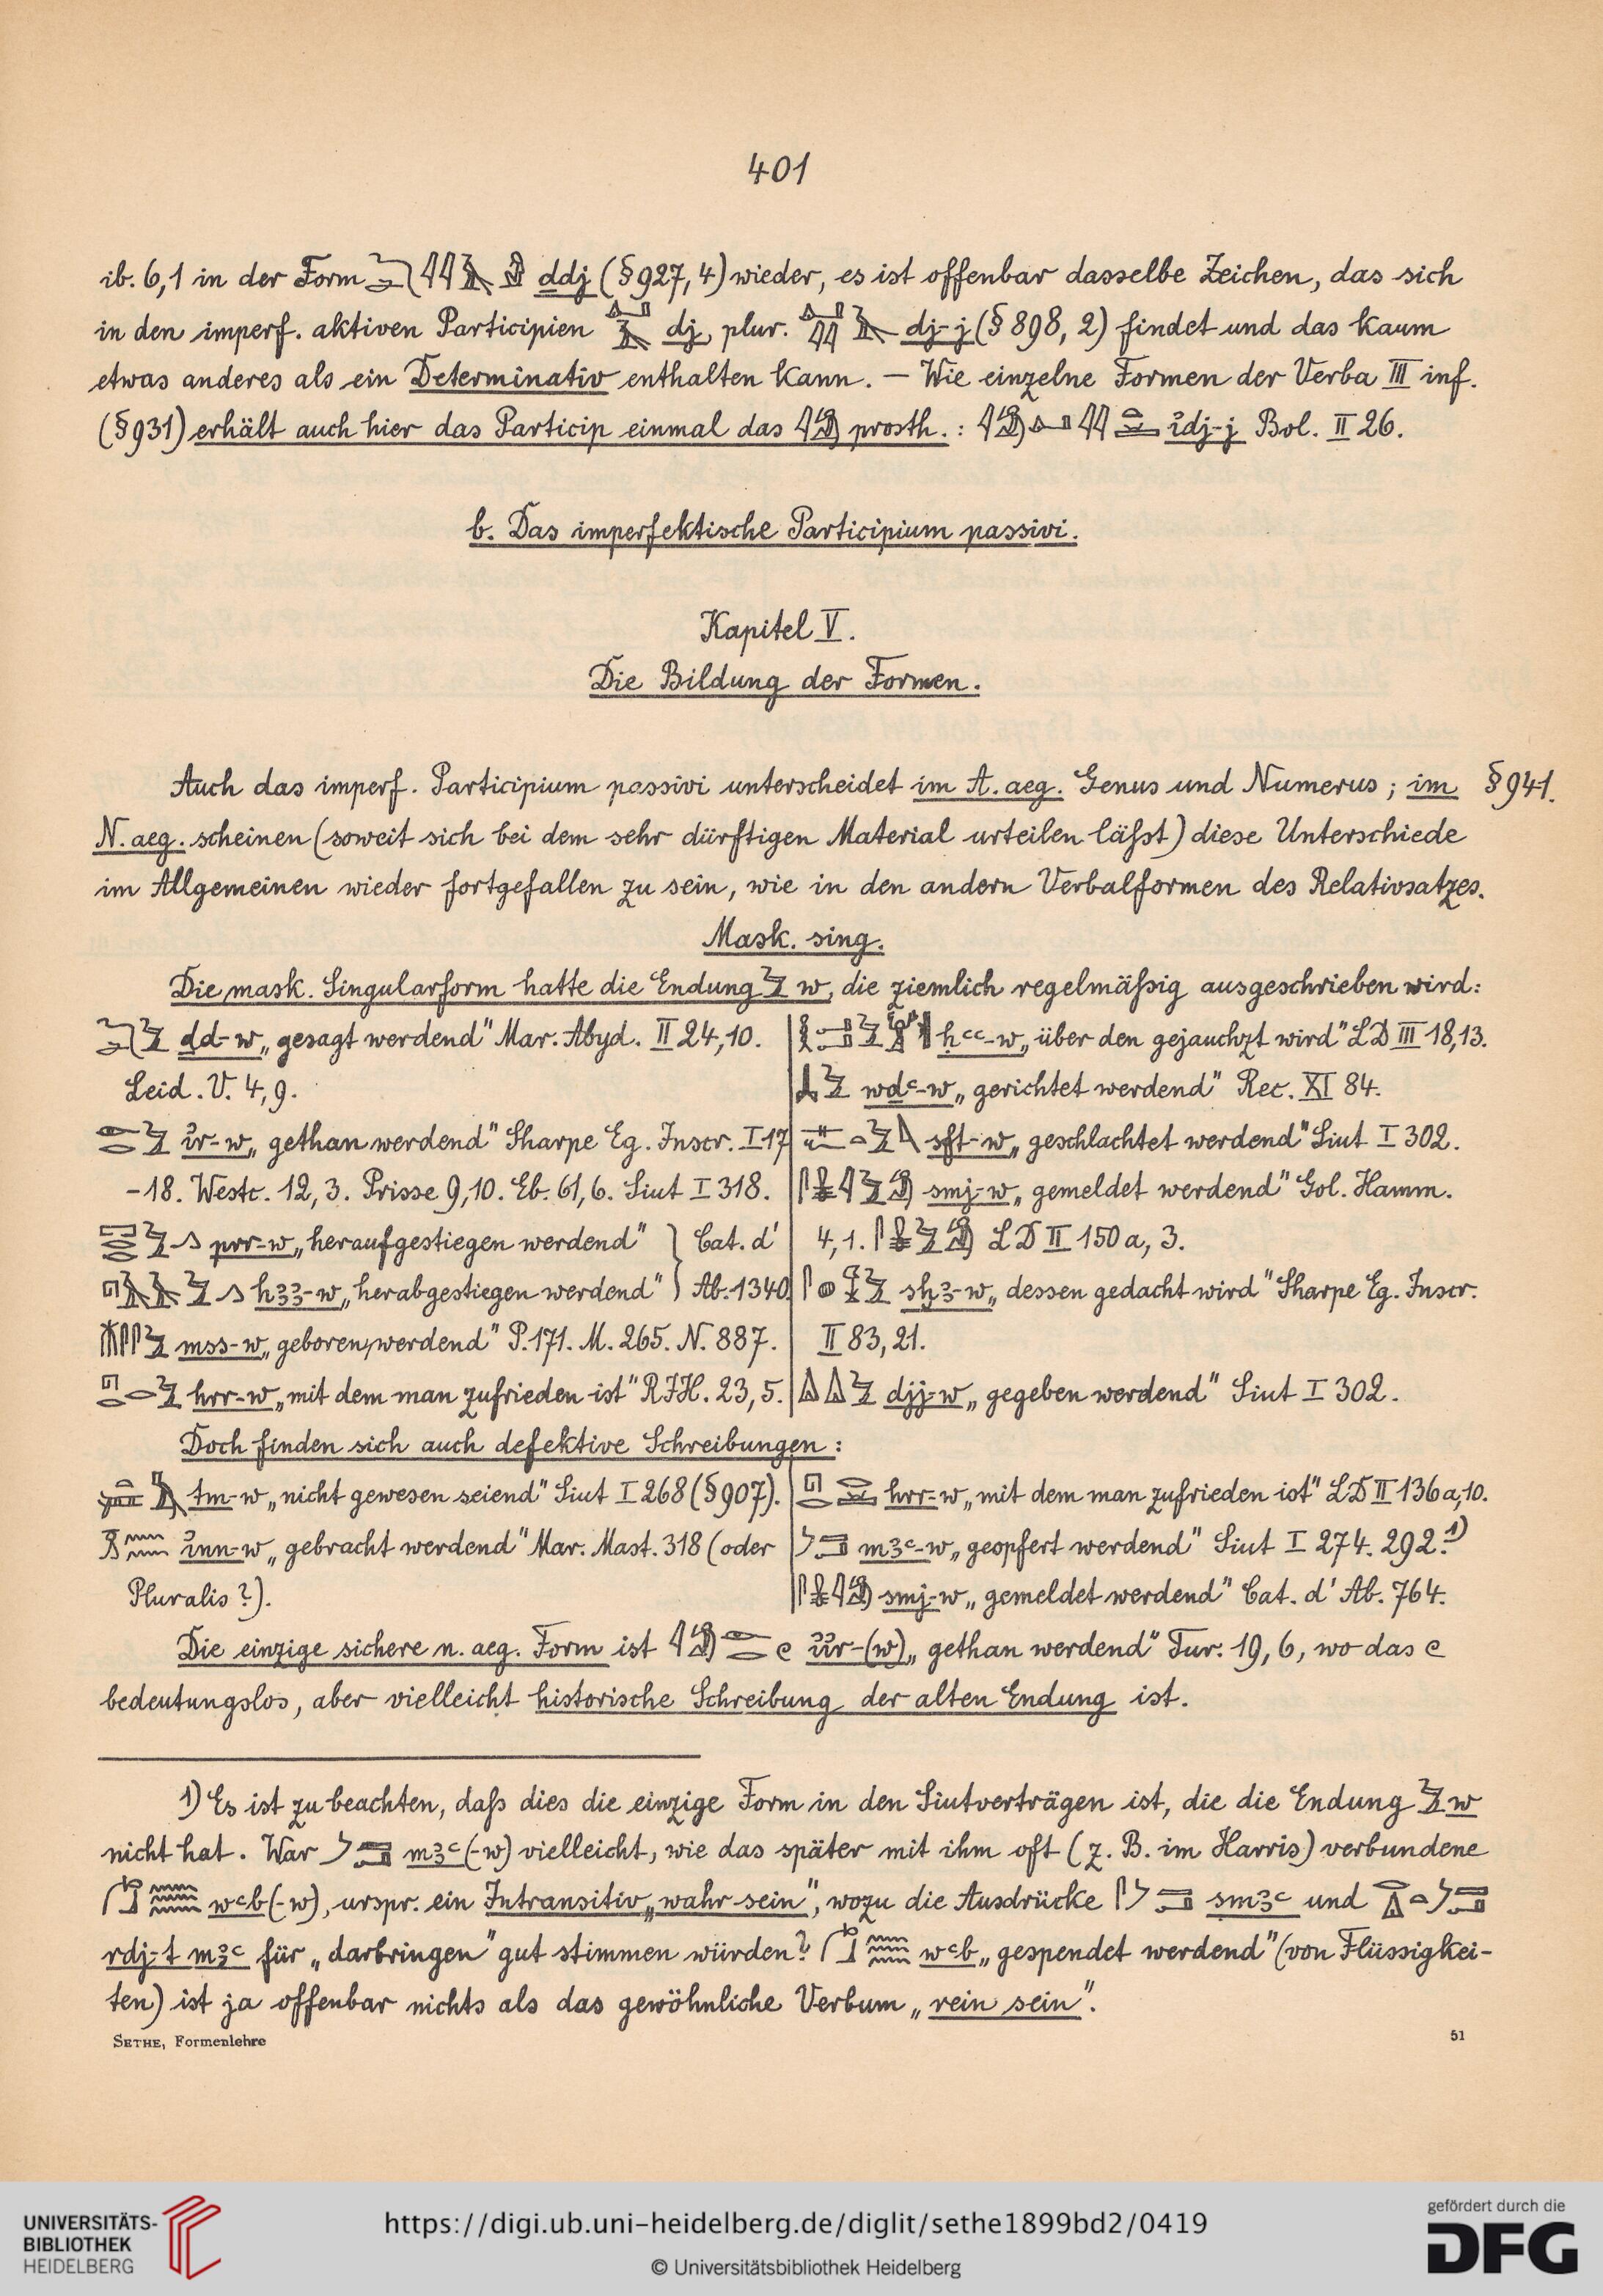 401
ib. 6,1 in der Form ddj (§ 927, 4) wieder, es ist offenbar dasselbe Zeichen, das sich
in den imperf. aktiven Participien dj, plur. dj-j (§ 898, 2) findet und das kaum
etwas anderes als ein Determinativ enthalten kann. — Wie einzelne Formen der Verba III inf.
(§ 931) erhält auch hier das Particip einmal das prosth.: ꞽdj-j Bol. II 26.
b. Das imperfektische Participium passivi.
Kapitel V.
Die Bildung der Formen.
Auch das imperf. Participium passivi unterscheidet im A. aeg. Genus und Numerus; im § 941.
N. aeg. scheinen (soweit sich bei dem sehr dürftigen Material urteilen läſst) diese Unterschiede
im Allgemeinen wieder fortgefallen zu sein, wie in den andern Verbalformen des Relativsatzes.
Mask. sing.
Die mask. Singularform hatte die Endung w, die ziemlich regelmäſsig ausgeschrieben wird:
ḏd-w „gesagt werdend" Mar. Abyd. II 24,10.
Leid. V. 4,9.
ꞽr-w „gethan werdend" Sharpe Eg. Inscr. I 17
-18. Westc. 12,3. Prisse 9,10. Eb. 61,6. Siut I 318.
prr-w „heraufgestiegen werdend" } Cat. d'
hꜣꜣ-w „herabgestiegen werdend" } Ab. 1340
mss-w „geboren werdend" P. 171. M. 265. N. 887.
hrr-w „mit dem man zufrieden ist" RIH. 23,5.
ḥꜥꜥ-w „über den gejauchzt wird" LD III 18,13.
wdꜥ-w „gerichtet werdend" Rec. XI 84.
sft-w „geschlachtet werdend" Siut I 302.
smj-w „gemeldet werdend" Gol. Hamm.
4,1. LD II 150 a, 3.
sḫꜣ-w „dessen gedacht wird" Sharpe Eg. Inscr.
II 83,21.
djj-w „gegeben werdend" Siut I 302.
Doch finden sich auch defektive Schreibungen:
tm-w „nicht gewesen seiend" Siut I 268 (§ 907).
ꞽnn-w „gebracht werdend" Mar. Mast. 318 (oder
Pluralis?).
hrr-w „mit dem man zufrieden ist" LD II 136 a, 10.
mꜣꜥ-w „geopfert werdend" Siut I 274. 292. 1)
smj-w „gemeldet werdend" Cat. d' Ab. 764.
Die einzige sichere n. aeg. Form ist ꞽꞽr-(w) „gethan werdend" Tur. 19,6, wo das
bedeutungslos, aber vielleicht historische Schreibung der alten Endung ist.
1) Es ist zu beachten, daſs dies die einzige Form in den Siutverträgen ist, die die Endung w
nicht hat. War mꜣꜥ(-w) vielleicht, wie das später mit ihm oft (z. B. im Harris) verbundene
wꜥb(-w), urspr. ein Intransitiv „wahr sein", wozu die Ausdrücke smꜣꜥ und
rdj-t mꜣꜥ für „darbringen" gut stimmen würden? wꜥb „gespendet werdend" (von Flüssigkei-
ten) ist ja offenbar nichts als das gewöhnliche Verbum „rein sein".
SETHE, Formenlehre 51
UNIVERSITÄTS-
BIBLIOTHEK
HEIDELBERG
https://digi.ub.uni-heidelberg.de/diglit/sethe1899bd2/0419
© Universitätsbibliothek Heidelberg
gefördert durch die
DFG